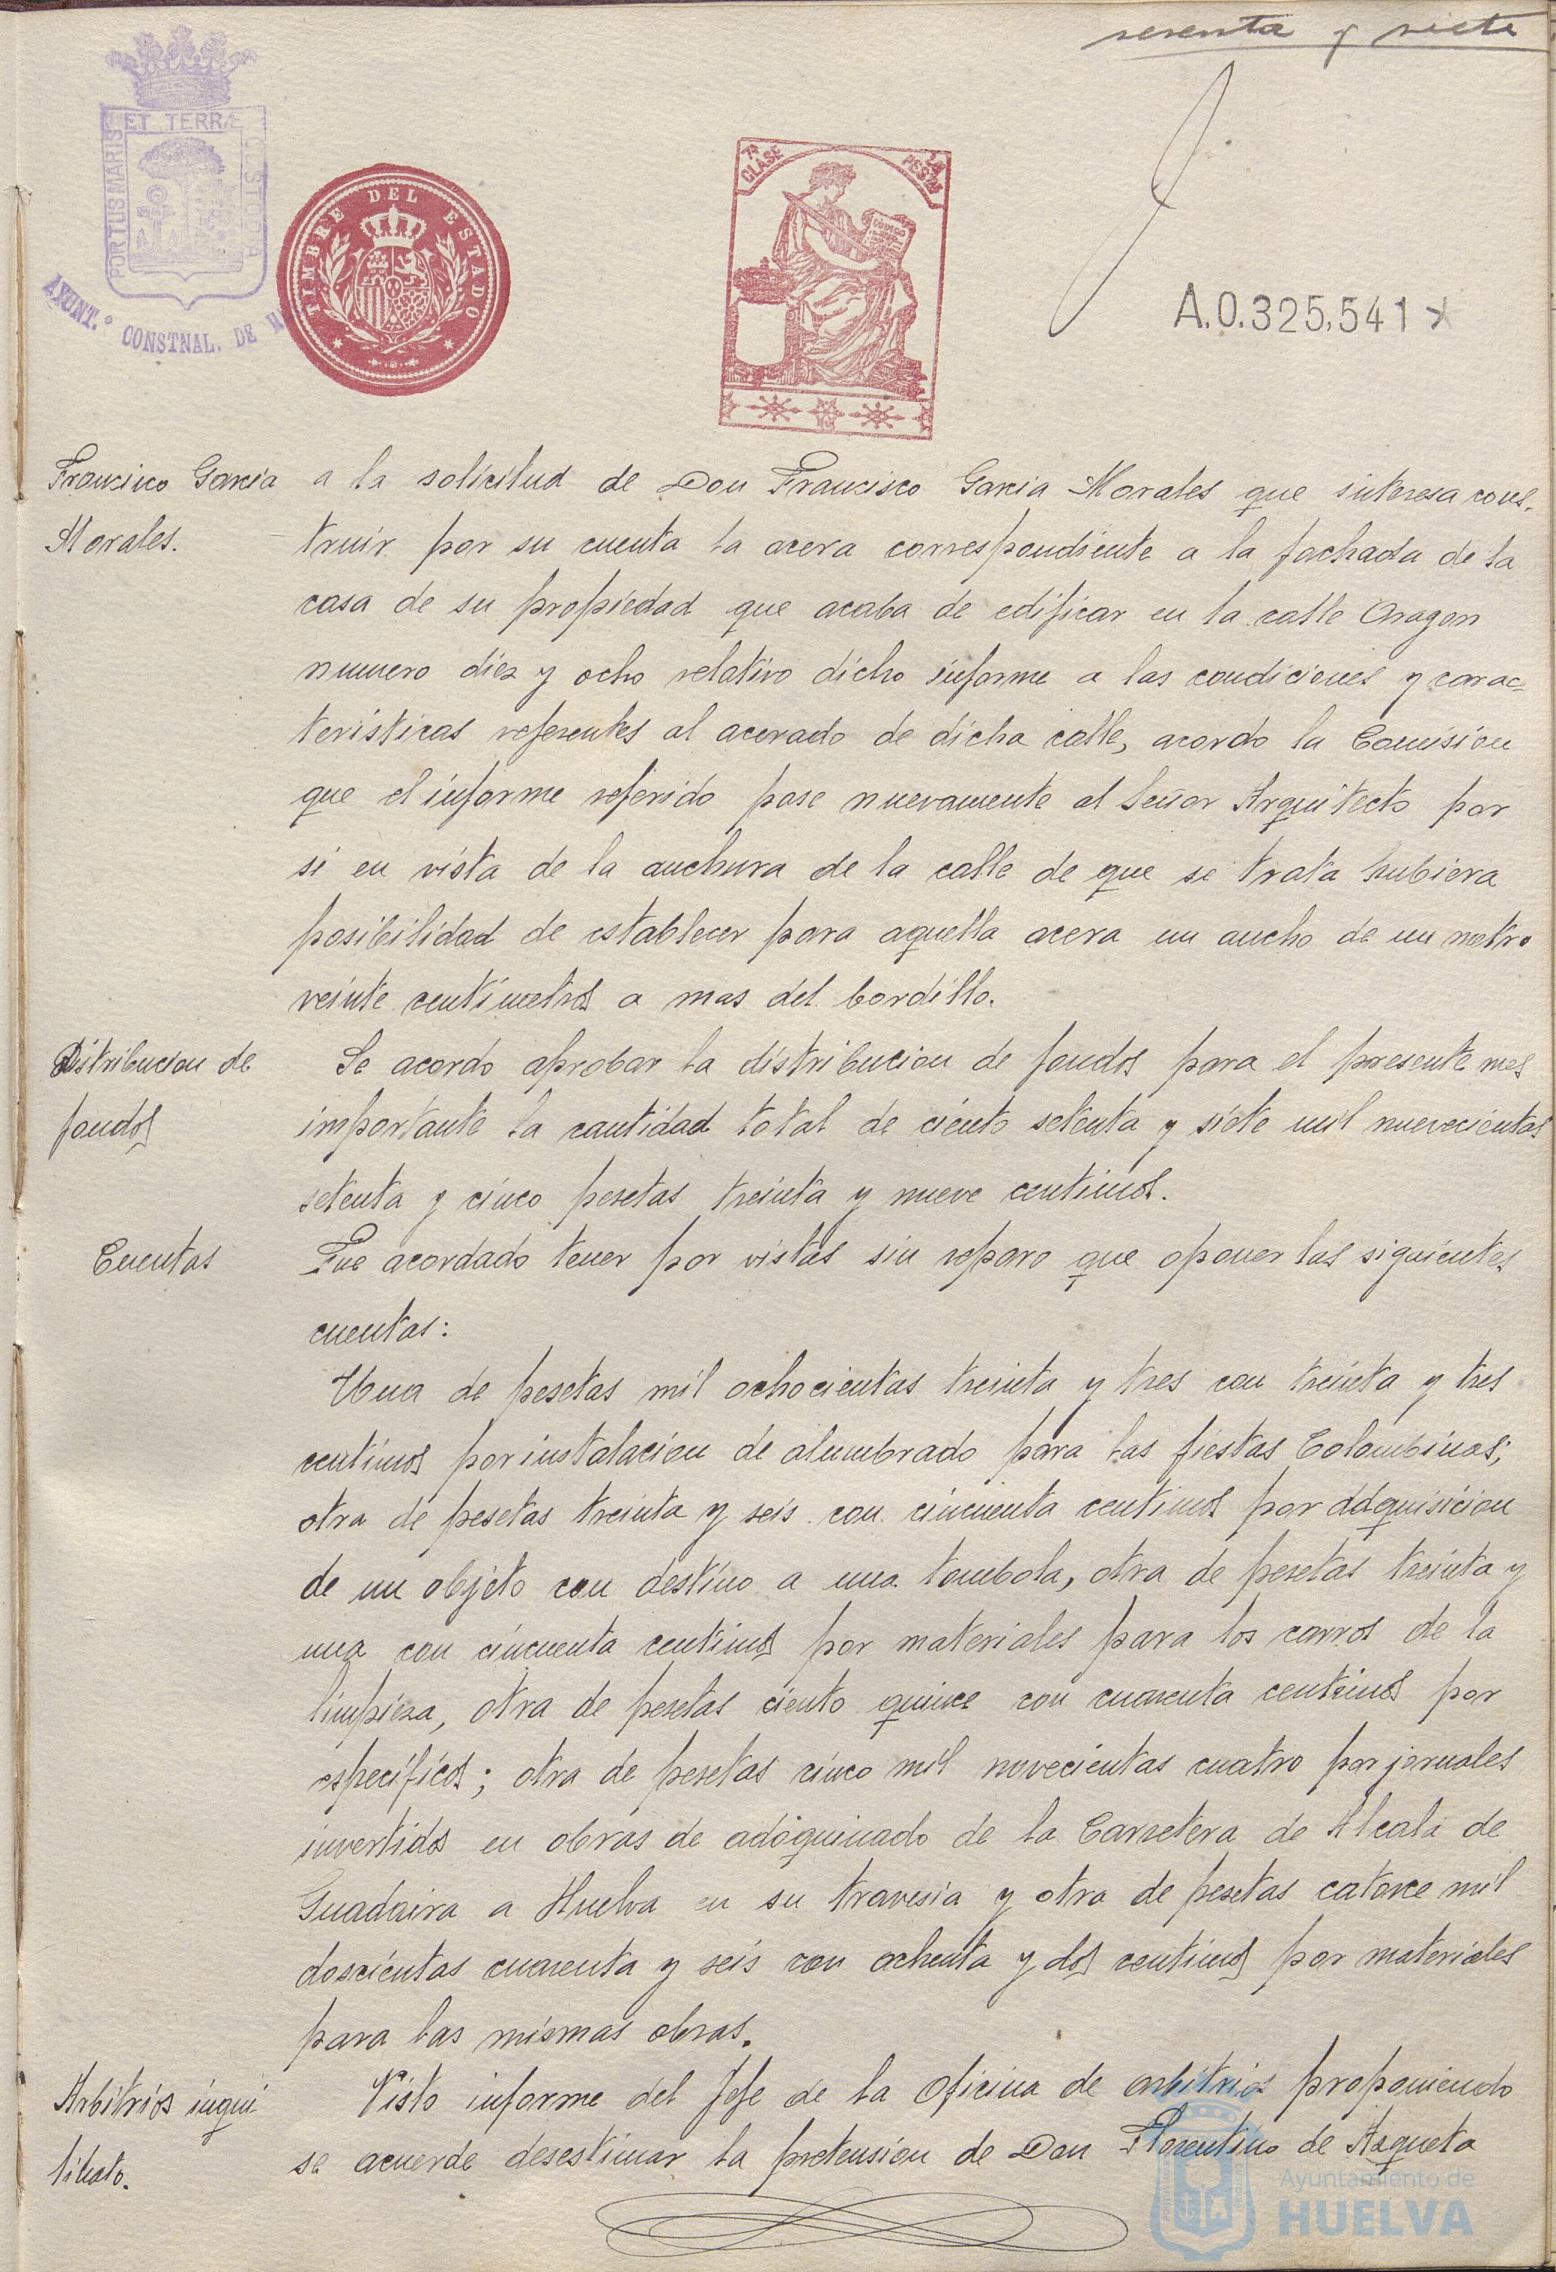 sesenta y siete
ET TERRÆ
PORTUS MARIS
CUSTODIA
AYUNT.º CONSTNAL. DE
TIMBRE DEL ESTADO
7ª CLASE
PESETAS
A.0.325,541
Francisco Garcia
Morales.
a la solicitud de Don Francisco Garcia Morales que interesa cons-
truir por su cuenta la acera correspondiente a la fachada de la
casa de su propiedad que acaba de edificar en la calle Aragon
numero diez y ocho relativo dicho informe a las condiciones y carac-
teristicas referentes al acerado de dicha calle, acordo la Comision
que el informe referido pase nuevamente al Señor Arquitecto por
si en vista de la anchura de la calle de que se trata hubiera
posibilidad de establecer para aquella acera un ancho de un metro
veinte centimetros a mas del bordillo.
Distribucion de
fondos
Se acordo aprobar la distribucion de fondos para el presente mes
importante la cantidad total de ciento setenta y siete mil nuevecientas
setenta y cinco pesetas treinta y nueve centimos.
Cuentas
Fue acordado tener por vistas sin reparo que oponer las siguientes
cuentas:
Una de pesetas mil ochocientas treinta y tres con treinta y tres
centimos por instalacion de alumbrado para las fiestas Colombinas;
otra de pesetas treinta y seis con cincuenta centimos por adquisicion
de un objeto con destino a una tombola, otra de pesetas treinta y
una con cincuenta centimos por materiales para los carros de la
limpieza, otra de pesetas ciento quince con cuarenta centimos por
especificos; otra de pesetas cinco mil novecientas cuatro por jornales
invertidos en obras de adoquinado de la Carretera de Alcala de
Guadaira a Huelva en su travesia y otra de pesetas catorce mil
doscientas cuarenta y seis con ochenta y dos centimos por materiales
para las mismas obras.
Arbitrios inqui-
linato.
Visto informe del Jefe de la Oficina de arbitrios proponiendo
se acuerde desestimar la pretension de Don Florentino de Azqueta
Ayuntamiento de
HUELVA